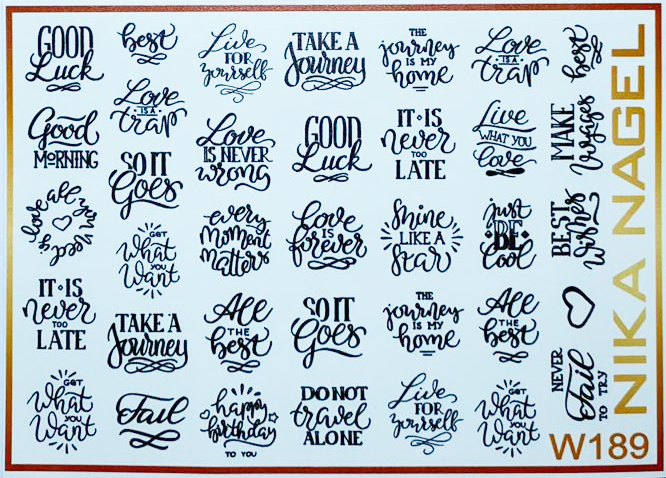 GOOD
Luck
Good
MORNING
all you need is love
IT IS
never
TOO
LATE
GET
What
YOU
Want
best
Love
IS A
trap
SO IT
Goes
GET
What
YOU
Want
TAKE A
Journey
Fail
Live
FOR
yourself
Love
IS NEVER
wrong
every
Moment
Matters
All
THE
best
happy
birthday
TO YOU
TAKE A
Journey
GOOD
Luck
Love
IS
forever
SO IT
Goes
DO NOT
travel
ALONE
THE
journey
IS MY
home
IT IS
never
TOO
LATE
Shine
LIKE A
Star
THE
journey
IS MY
home
Live
FOR
yourself
Love
IS A
trap
Live
WHAT YOU
love
just
BE
Cool
All
THE
best
GET
What
YOU
Want
best
MAKE
Voyages
BEST
Wishes
NEVER
Fail
TO TRY
NIKA NAGEL
W189